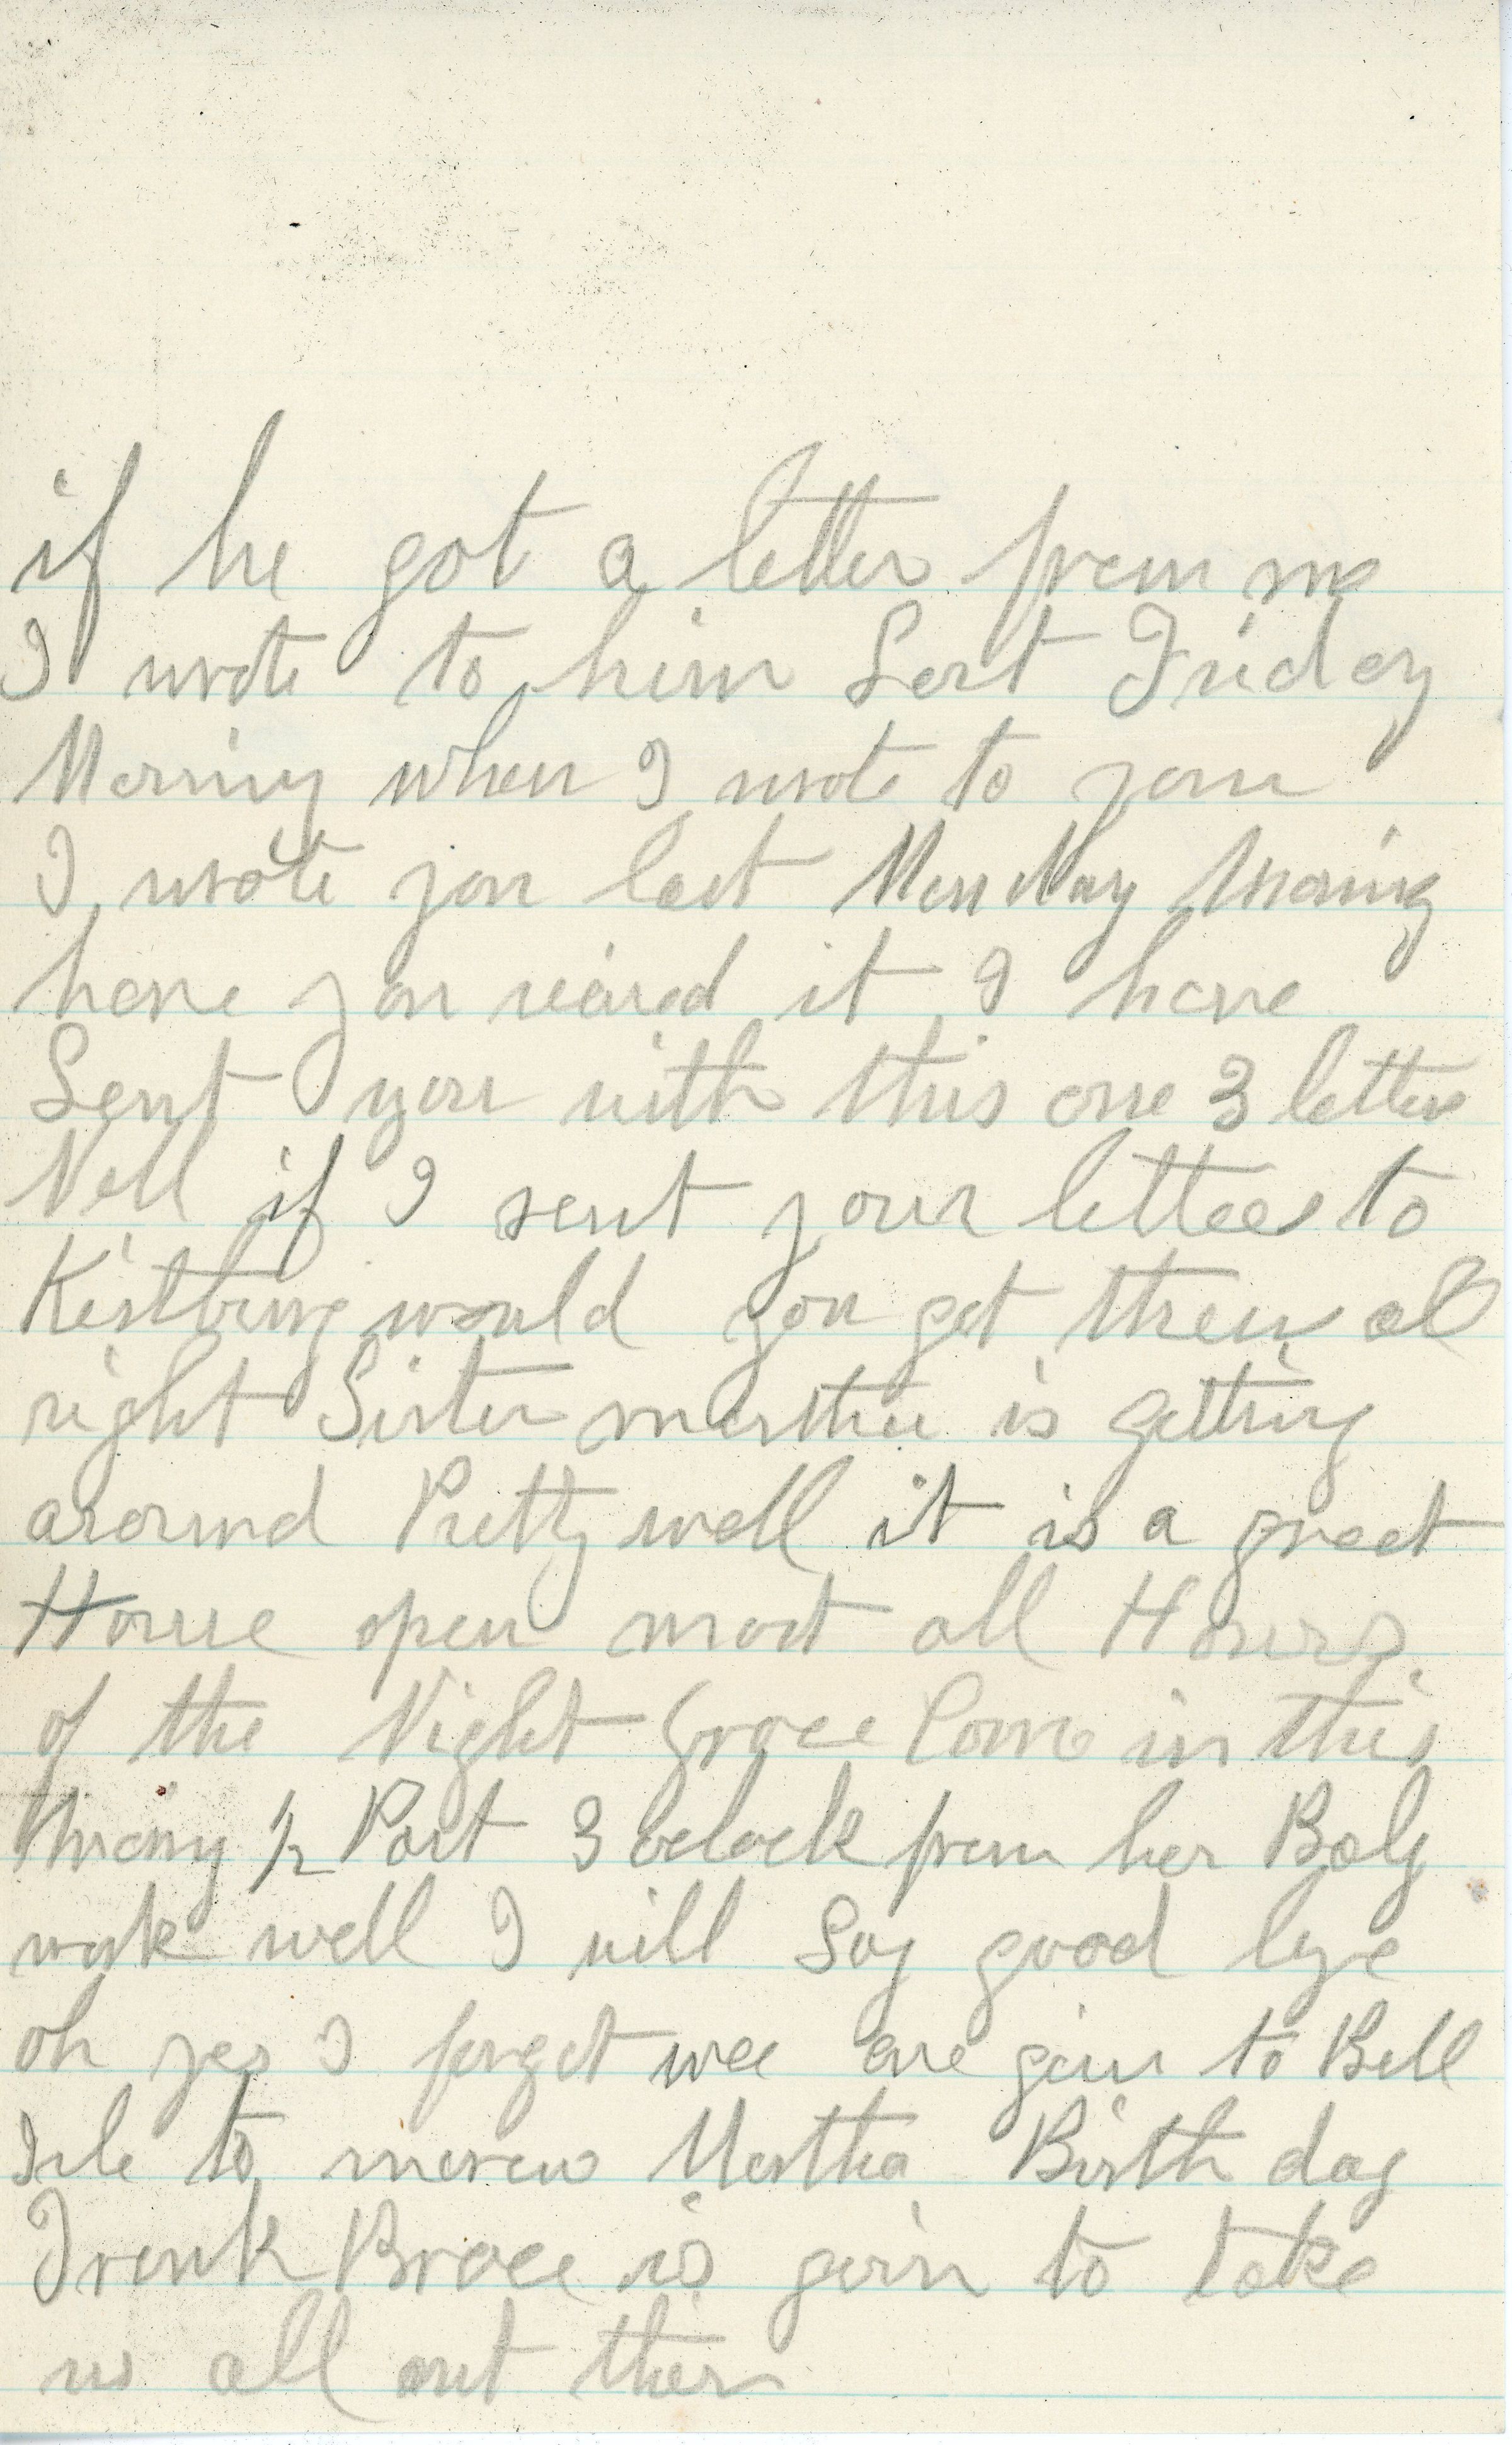 if he got a letter from me
I wrote to him Last Friday
Morning when I wrote to you
I wrote you last Monday Morning
have you reived it I have
Sent you with this one 3 letters
Nell if I sent your letters to
would you get them all
right Sister martha is getting
around Pretty well it is a great
House open most all Hours
of the Night Grace Come in this
1/2 Past 3 oclock from her
work well I will Say good bye
oh yes I forget wee are goin to Bell
Isle to morow Martha Birth day
Frank Brace is goin to take
us all out ther